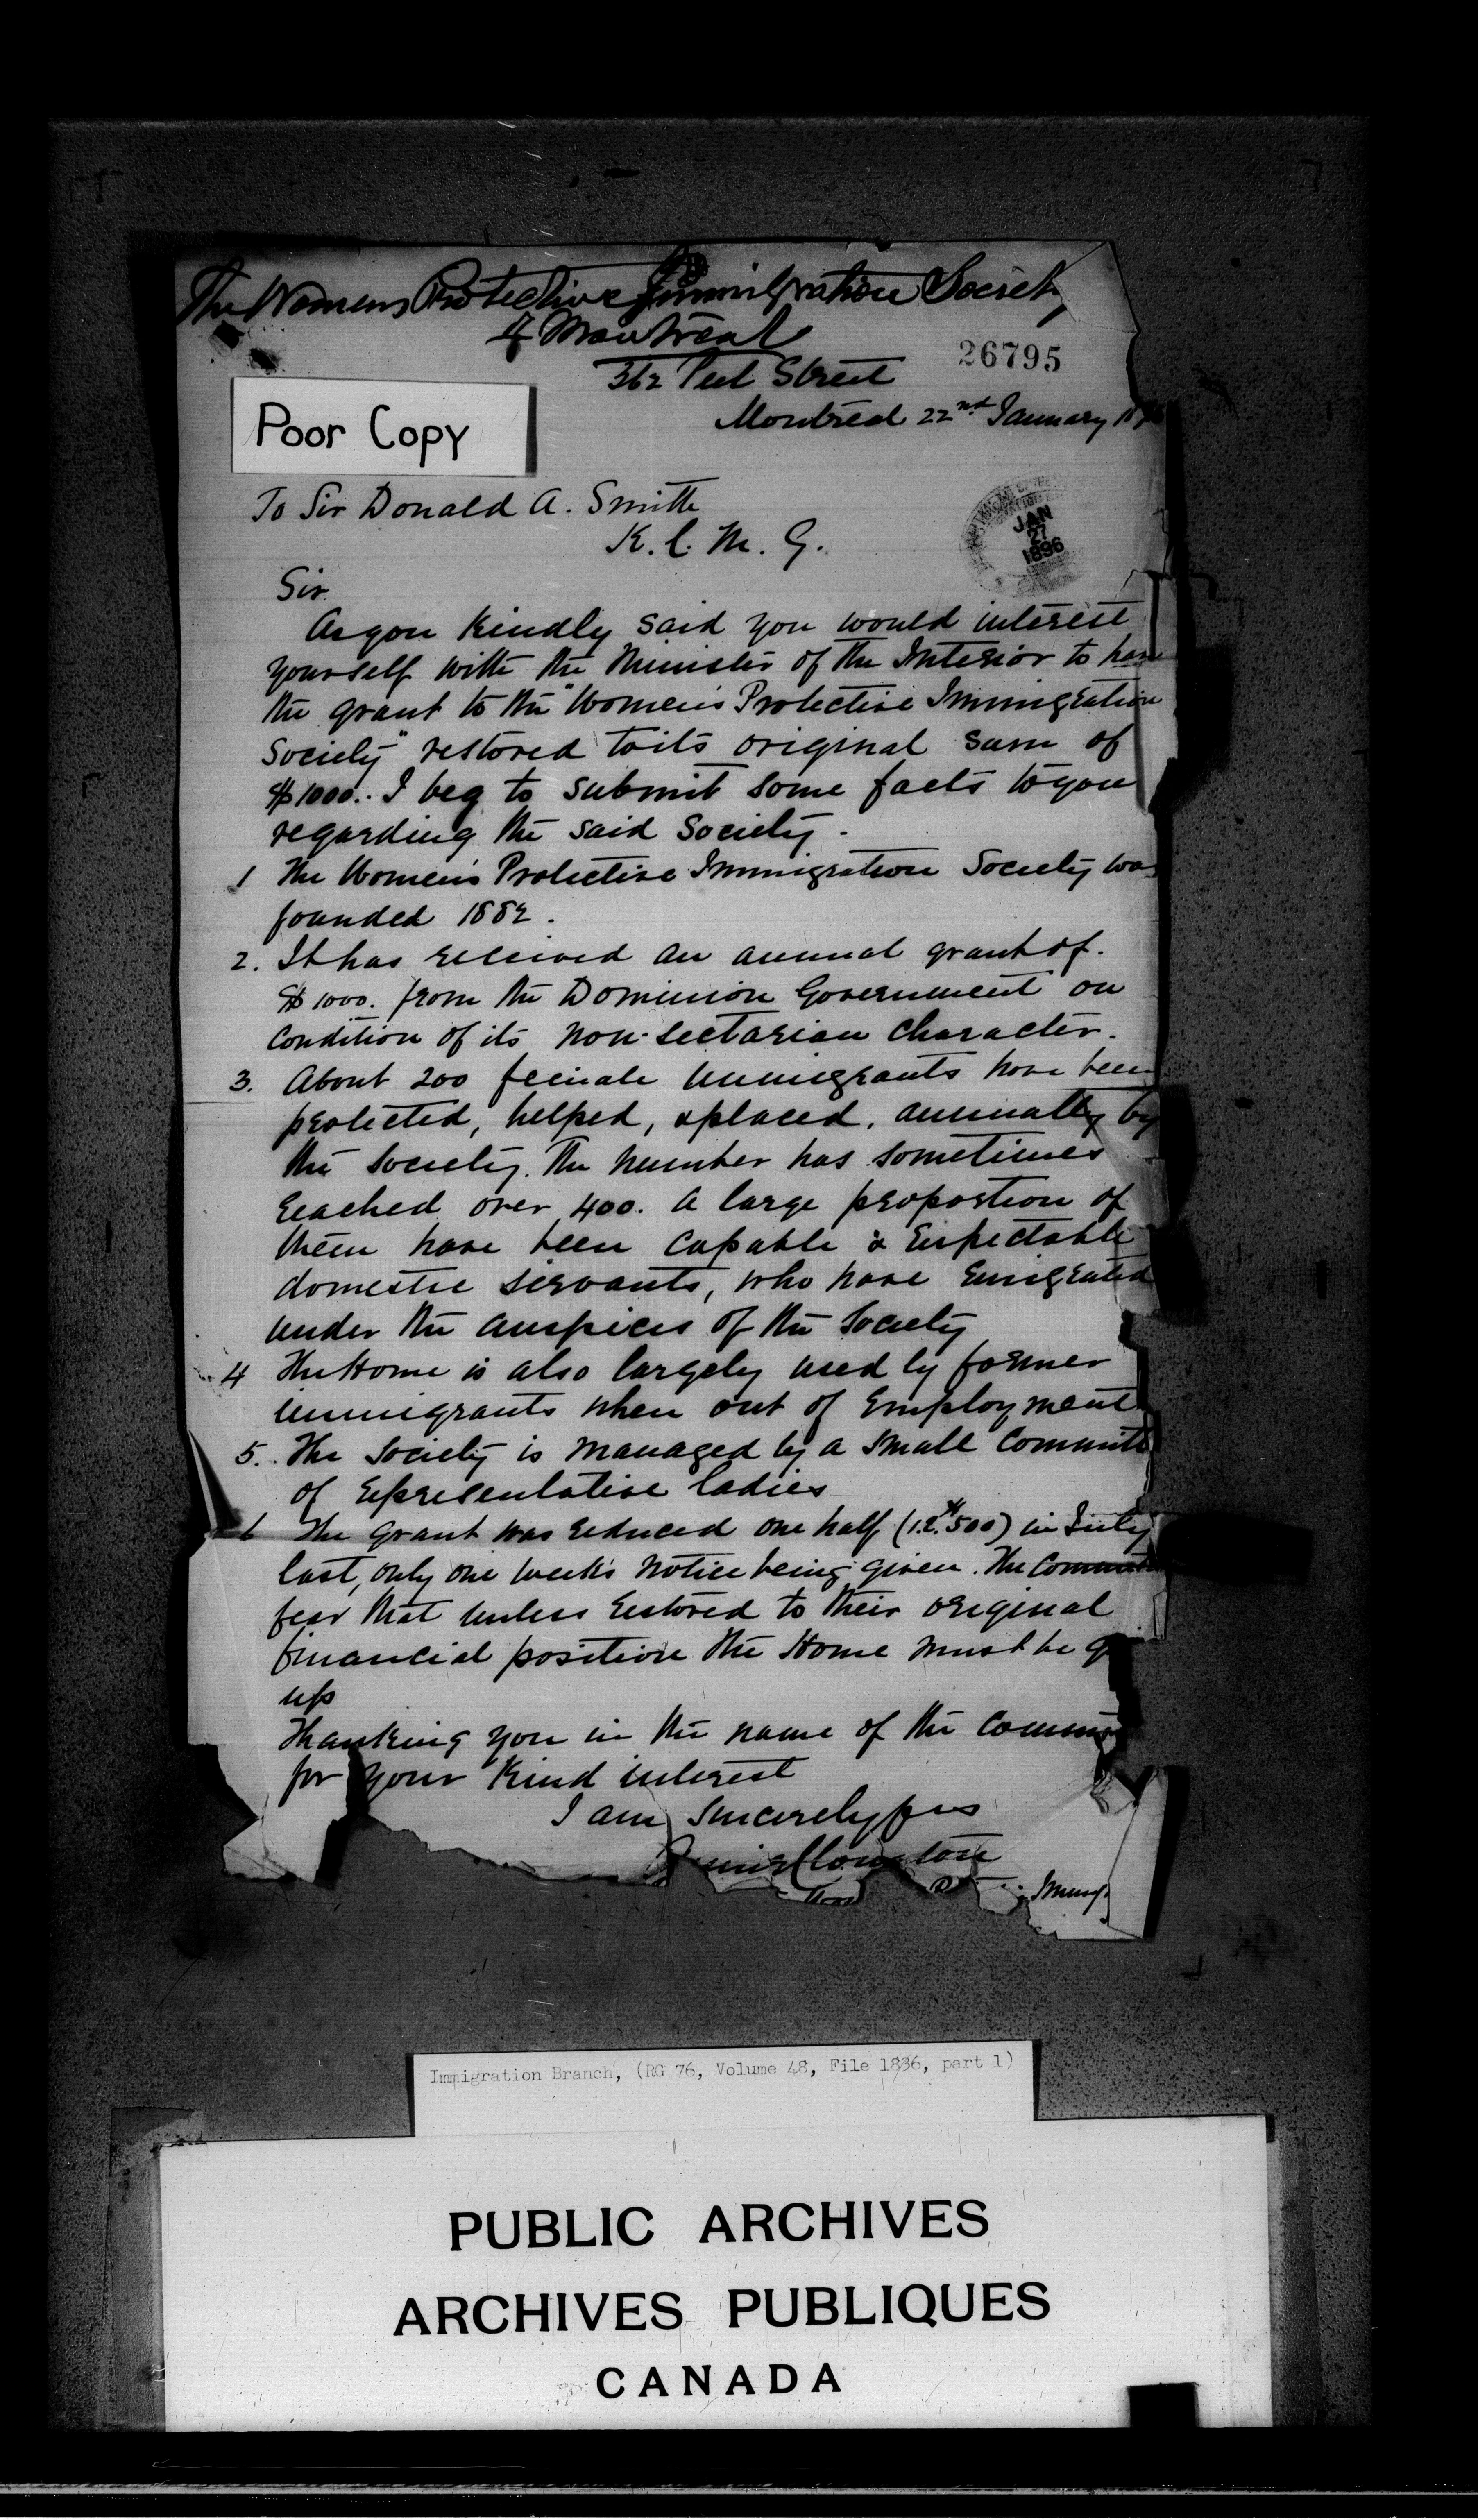 The Womens Protective Immigration Society
of Montreal
26795
362 Peel Street
Montreal 22nd January 18
Poor Copy
To Sir Donald A. Smith
K. C. M. G.
JAN
27
1896
Sir
As you kindly said you would interest
yourself with the Minister of the Interior to have
the grant to the "Women's Protective Immigration
Society" restored to its original sum of
$1000.. I beg to submit some facts to you
regarding the said Society.
1 The Women's Protective Immigration Society was
founded 1882.
2. It has received an annual grant of.
$1000. from the Dominion Government on
condition of its non-sectarian character.
3. About 200 female immigrants have been
protected, helped, & placed, annually by
the Society. The number has sometimes
reached over 400. A large proportion of
them have been capable & respectable
domestic servants, who have emigrated
under the auspices of the Society
4 The Home is also largely used by former
immigrants when out of employment
5. The Society is managed by a small Committe
of representative ladies
6 The grant was reduced one half (i.e. $500) in July
last, only one week's notice being given. The Committ
fear that unless restored to their original
financial position the Home must be g
up
Thanking you in the name of the Commi
for your kind interest
I am sincerely yrs
Immig
Immigration Branch, (RG 76, Volume 48, File 1836, part 1)
PUBLIC ARCHIVES
ARCHIVES PUBLIQUES
CANADA